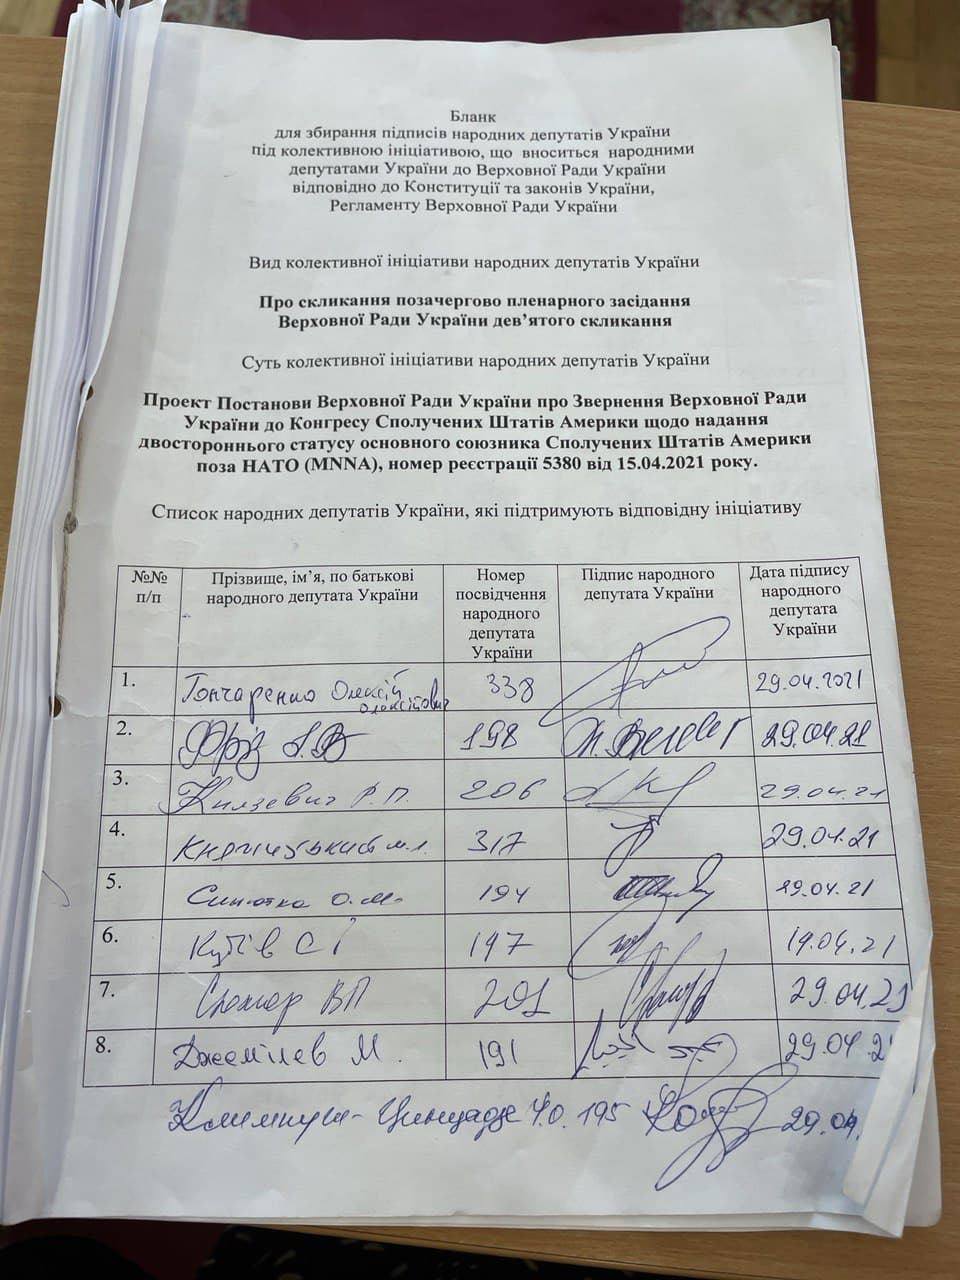 Бланк
для збирання підписів народних депутатів України
під колективною ініціативою, що вноситься народними
депутатами України до Верховної Ради України
відповідно до Конституції та законів України,
Регламенту Верховної Ради України
Вид колективної ініціативи народних депутатів України
Про скликання позачергово пленарного засідання
Верховної Ради України дев’ятого скликання
Суть колективної ініціативи народних депутатів України
Проект Постанови Верховної Ради України про Звернення Верховної Ради
України до Конгресу Сполучених Штатів Америки щодо надання
двостороннього статусу основного союзника Сполучених Штатів Америки
поза НАТО (MNNA), номер реєстрації 5380 від 15.04.2021 року.
Список народних депутатів України, які підтримують відповідну ініціативу
№№ п/п
Прізвище, ім’я, по батькові
народного депутата України
Номер
посвідчення
народного
депутата
України
Підпис народного
депутата України
Дата підпису
народного
депутата
України
1. Гончаренко Олексій Олексійович 338 29.04.2021
2. Фріз І.В 198 29.04.21
3. Князевич Р.П. 206 29.04.21
4. Княжицький М.Л. 317 29.04.21
5. Синютка О.М. 194 29.04.21
6. Кубів С І 197 19.04.21
7. Сюмар ВП 201 29.04.21
8. Джемілєв М. 191 29.04.2
Климпуш-Цинцадзе І.О. 195 29.04.